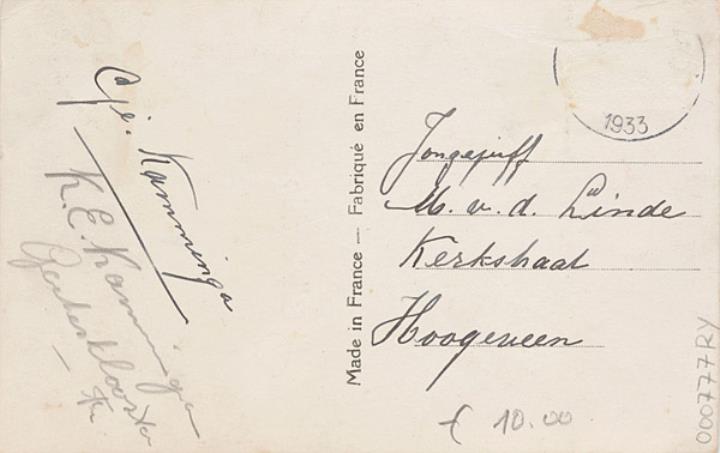 Cje. Kamminga
K. E. Kamminga
Gerkesklooster
Fr.
Made in France — Fabriqué en France
1933
Jongejuff
M. v. d. Linde
Kerkstraat
Hoogeveen
€ 10.00
000777RY